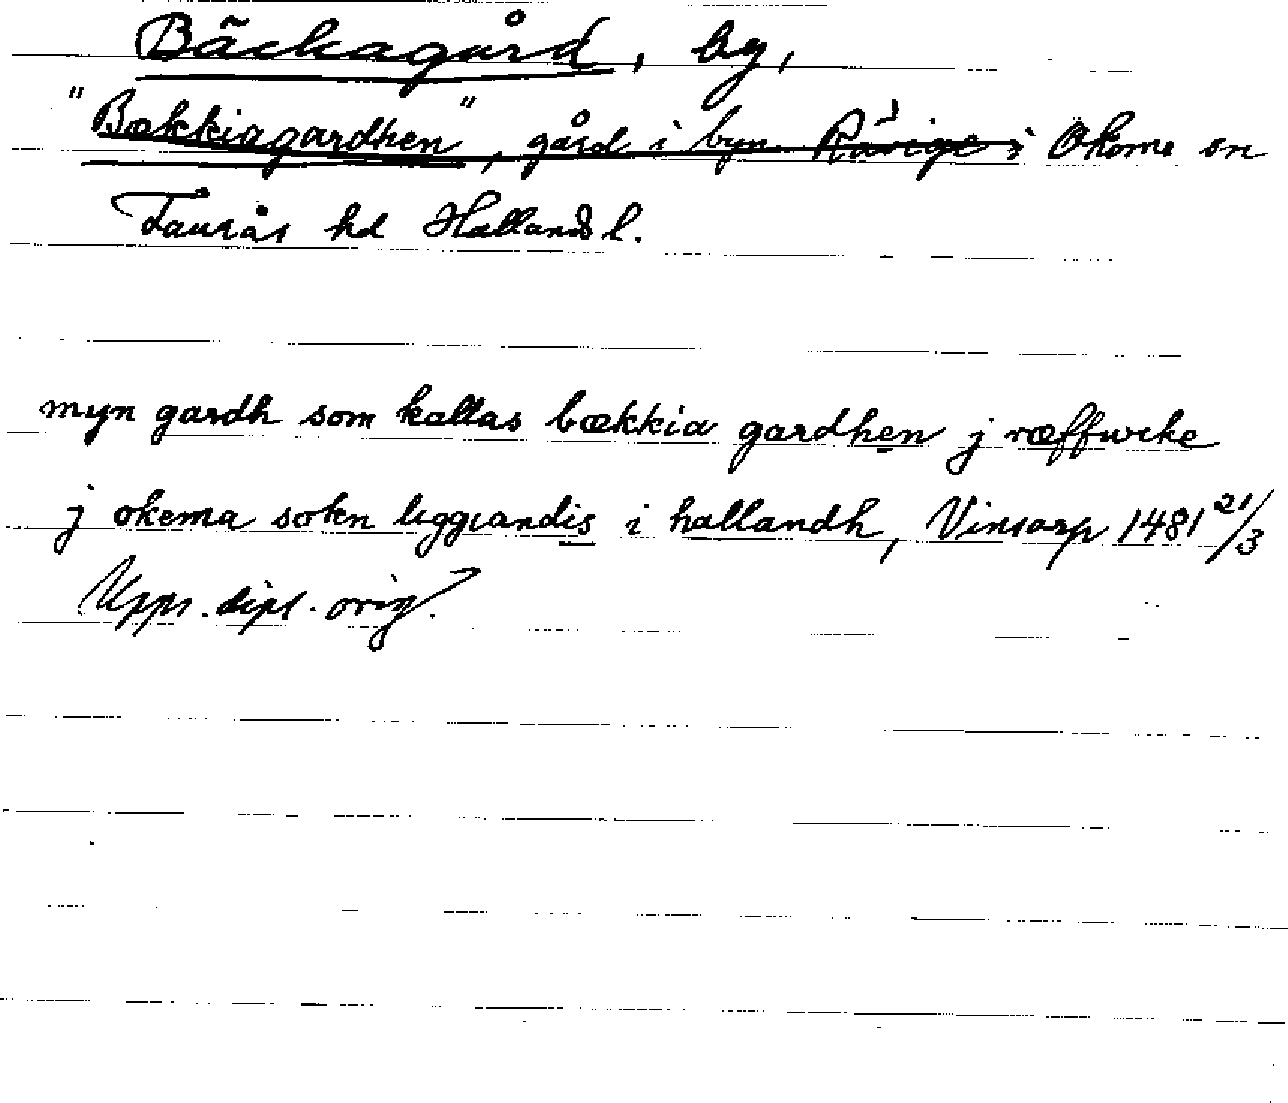 Bäckagård, by,
"Bækkiagardhen", gård i byn Rävige i Okome sn
Faurås hd Hallands l.
myn gardh som kallas bækkia gardhen j ræffwcke
j okema sokn liggiandis i hallandh, Vinsarp 1481 21/3
Upps. dipl. orig.